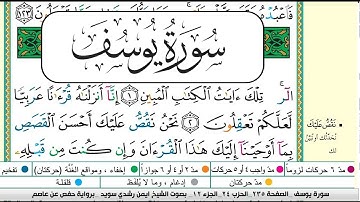 فَٱعْبُدْهُ
١٢٣
سُورَةُ يُوسُفَ
الٓر ۚ تِلْكَ ءَايَٰتُ ٱلْكِتَٰبِ ٱلْمُبِينِ ١ إِنَّآ أَنزَلْنَٰهُ قُرْءَٰنًا عَرَبِيًّا
لَّعَلَّكُمْ تَعْقِلُونَ ٢ نَحْنُ نَقُصُّ عَلَيْكَ أَحْسَنَ ٱلْقَصَصِ
بِمَآ أَوْحَيْنَآ إِلَيْكَ هَٰذَا ٱلْقُرْءَانَ وَإِن كُنتَ مِن قَبْلِهِۦ
نَقُصُّ عَلَيْكَ
نُحَدِّثُكَ أو نُبَيِّنُ
مدّ ٦ حركات لزوماً مدّ ٢ أو ٤ أو ٦ جوازاً إخفاء، ومواقع الغُنَّة (حركتان) تفخيم
مدّ واجب ٤ أو ٥ حركات مدّ حركتان إدغام، وما لا يُلفَظ قلقلة
سورة يوسف الصفحة ٢٣٥ الحزب ٢٤ الجزء ١٢ بصوت الشيخ أيمن رشدي سويد برواية حفص عن عاصم